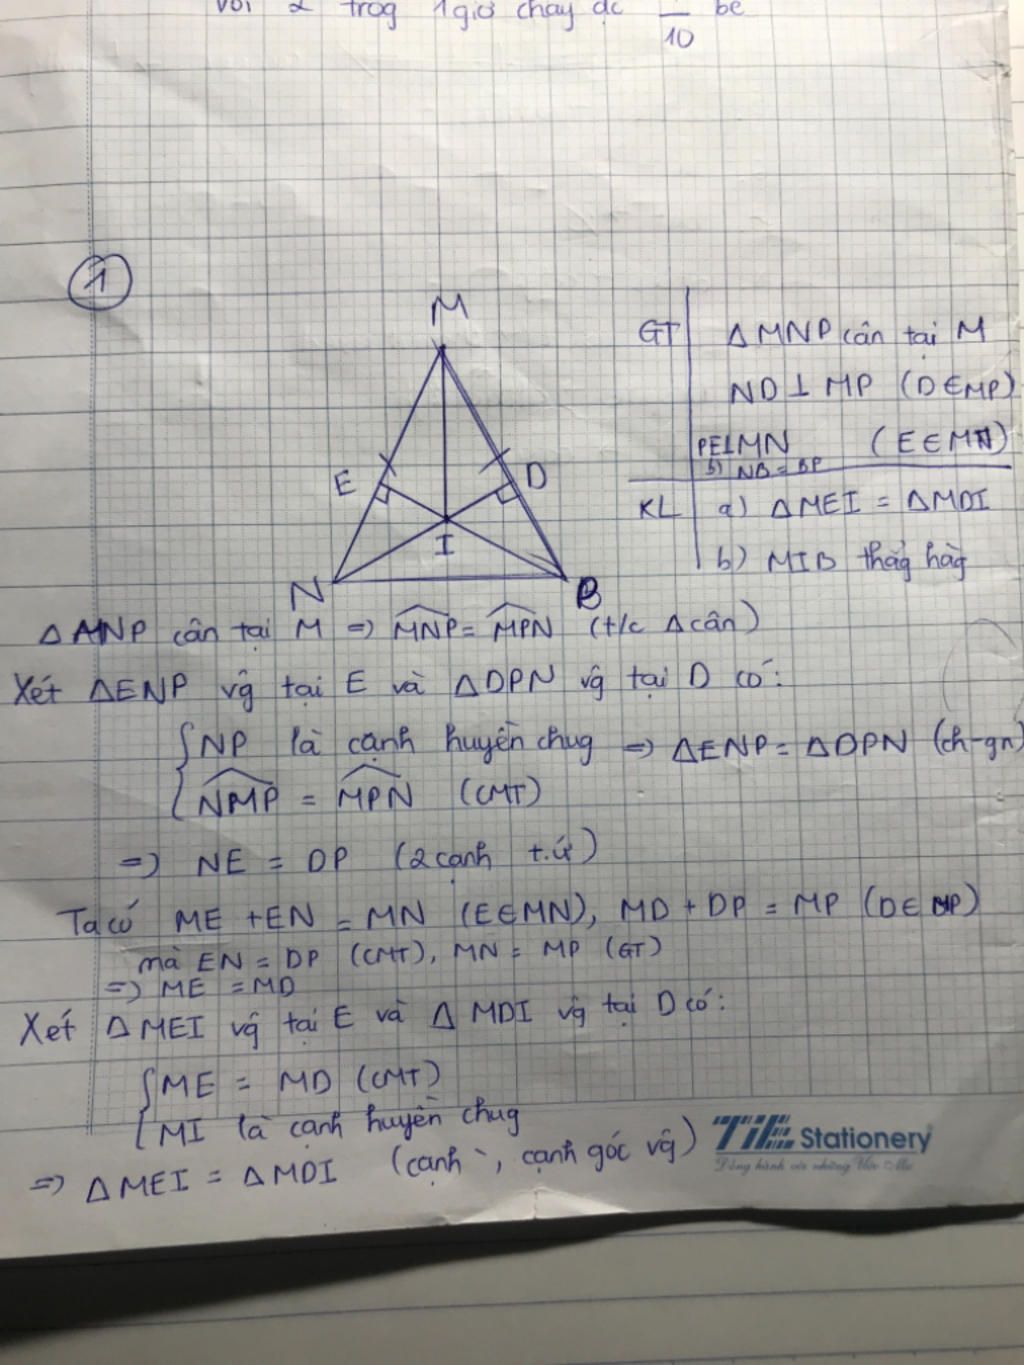 với 2 trog 1 giờ chảy đc __ bể
10
1
M
E
D
I
N
B
GT
Δ MNP cân tại M
ND ⊥ MP (D ∈ MP)
PE⊥MN (E ∈ MN)
b) NB = BP
KL
a) ΔMEI = ΔMDI
b) MIB thẳg hàg
Δ MNP cân tại M => MNP = MPN (t/c Δ cân)
Xét ΔENP vg̃ tại E và ΔDPN vg̃ tại D có:
{ NP là cạnh huyền chug => ΔENP = ΔDPN (ch-gn)
NMP = MPN (CMT)
=> NE = DP (2 cạnh t.ứ)
Ta có ME + EN = MN (E∈MN), MD + DP = MP (D∈MP)
mà EN = DP (CMT), MN = MP (GT)
=> ME = MD
Xét ΔMEI vg̃ tại E và Δ MDI vg̃ tại D có:
{ ME = MD (CMT)
MI là cạnh huyền chug
=> ΔMEI = ΔMDI (cạnh `, cạnh góc vg̃)
TiE Stationery
Đồng hành với những Ước Mơ